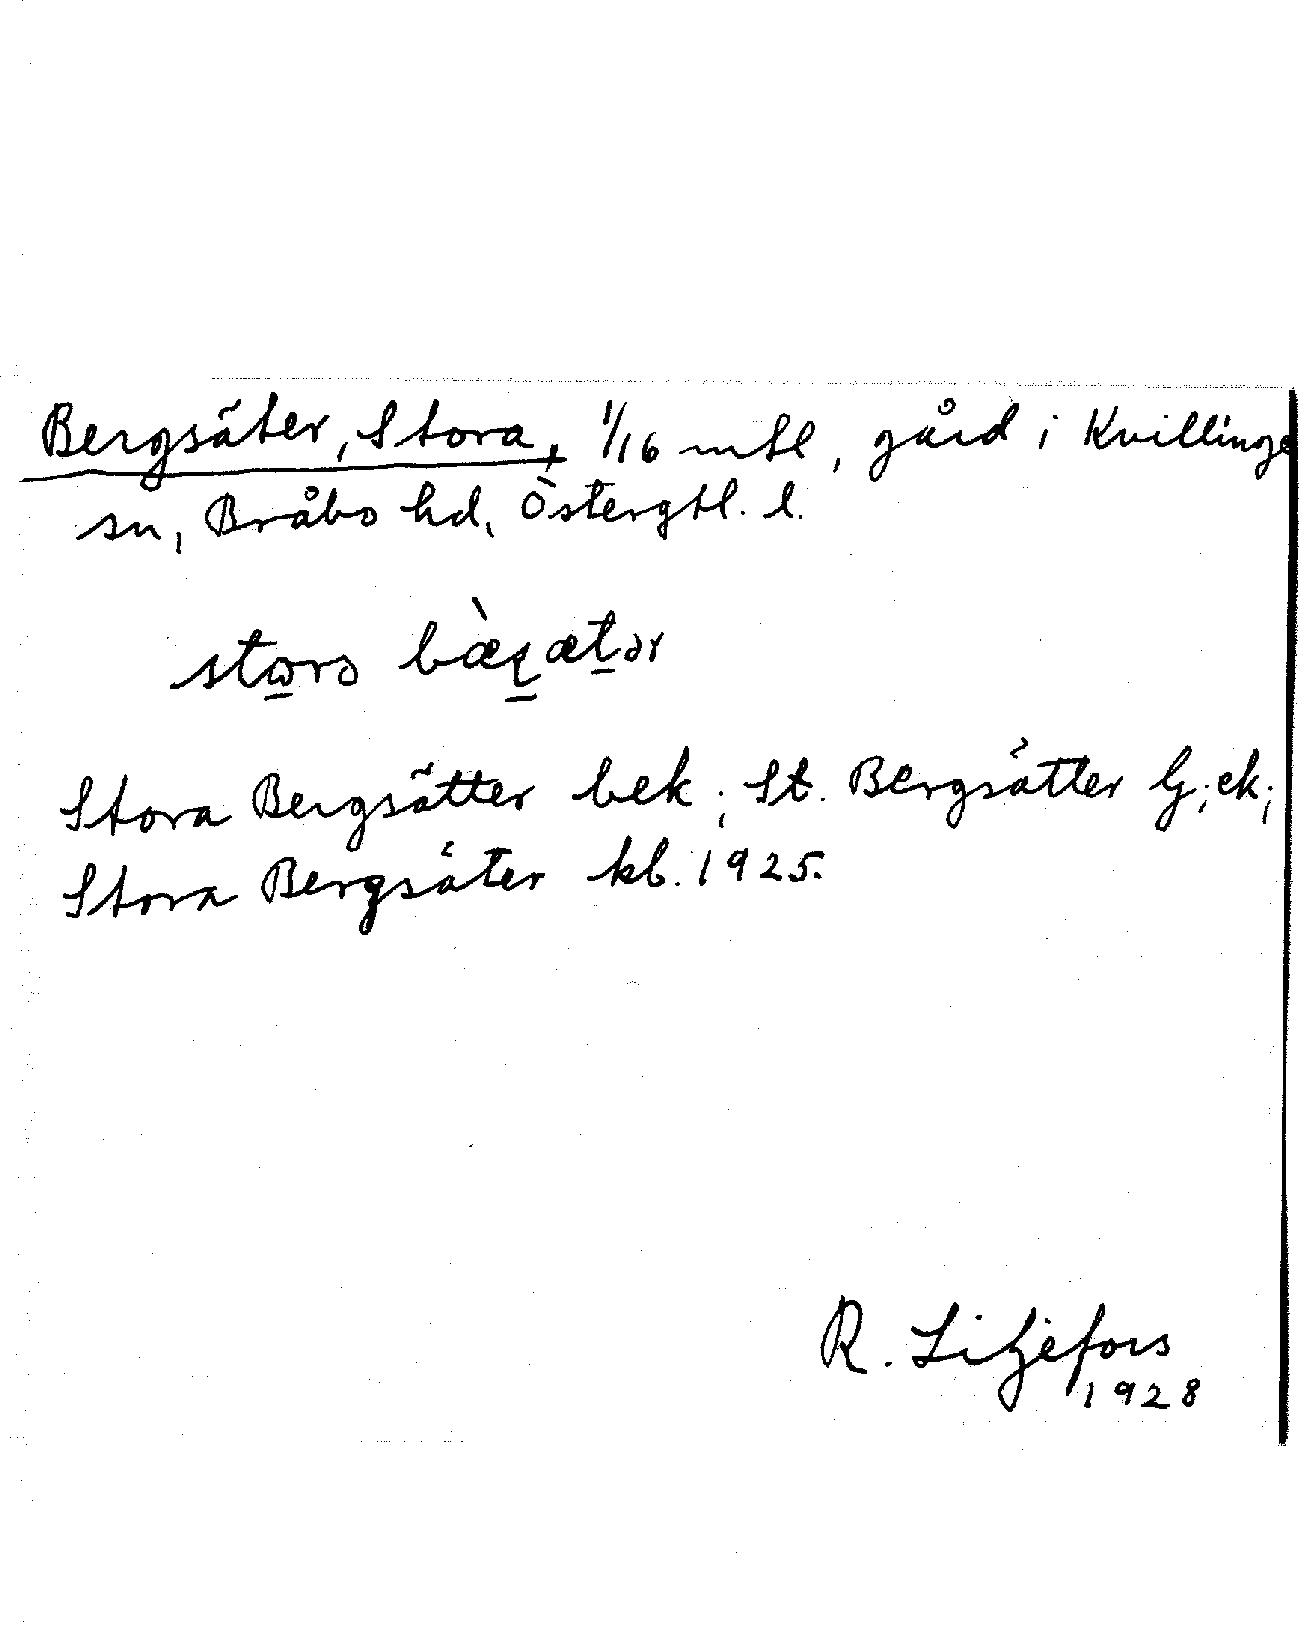 Bergsäter, Stora, 1/16 mtl, gård i Kvillinge
sn, Bråbo hd, Östergtl. l.
Stora Bergsätter bek; St. Bergsätter Gj; ek;
Stora Bergsäter kb. 1925.
R. Liljefors
1928